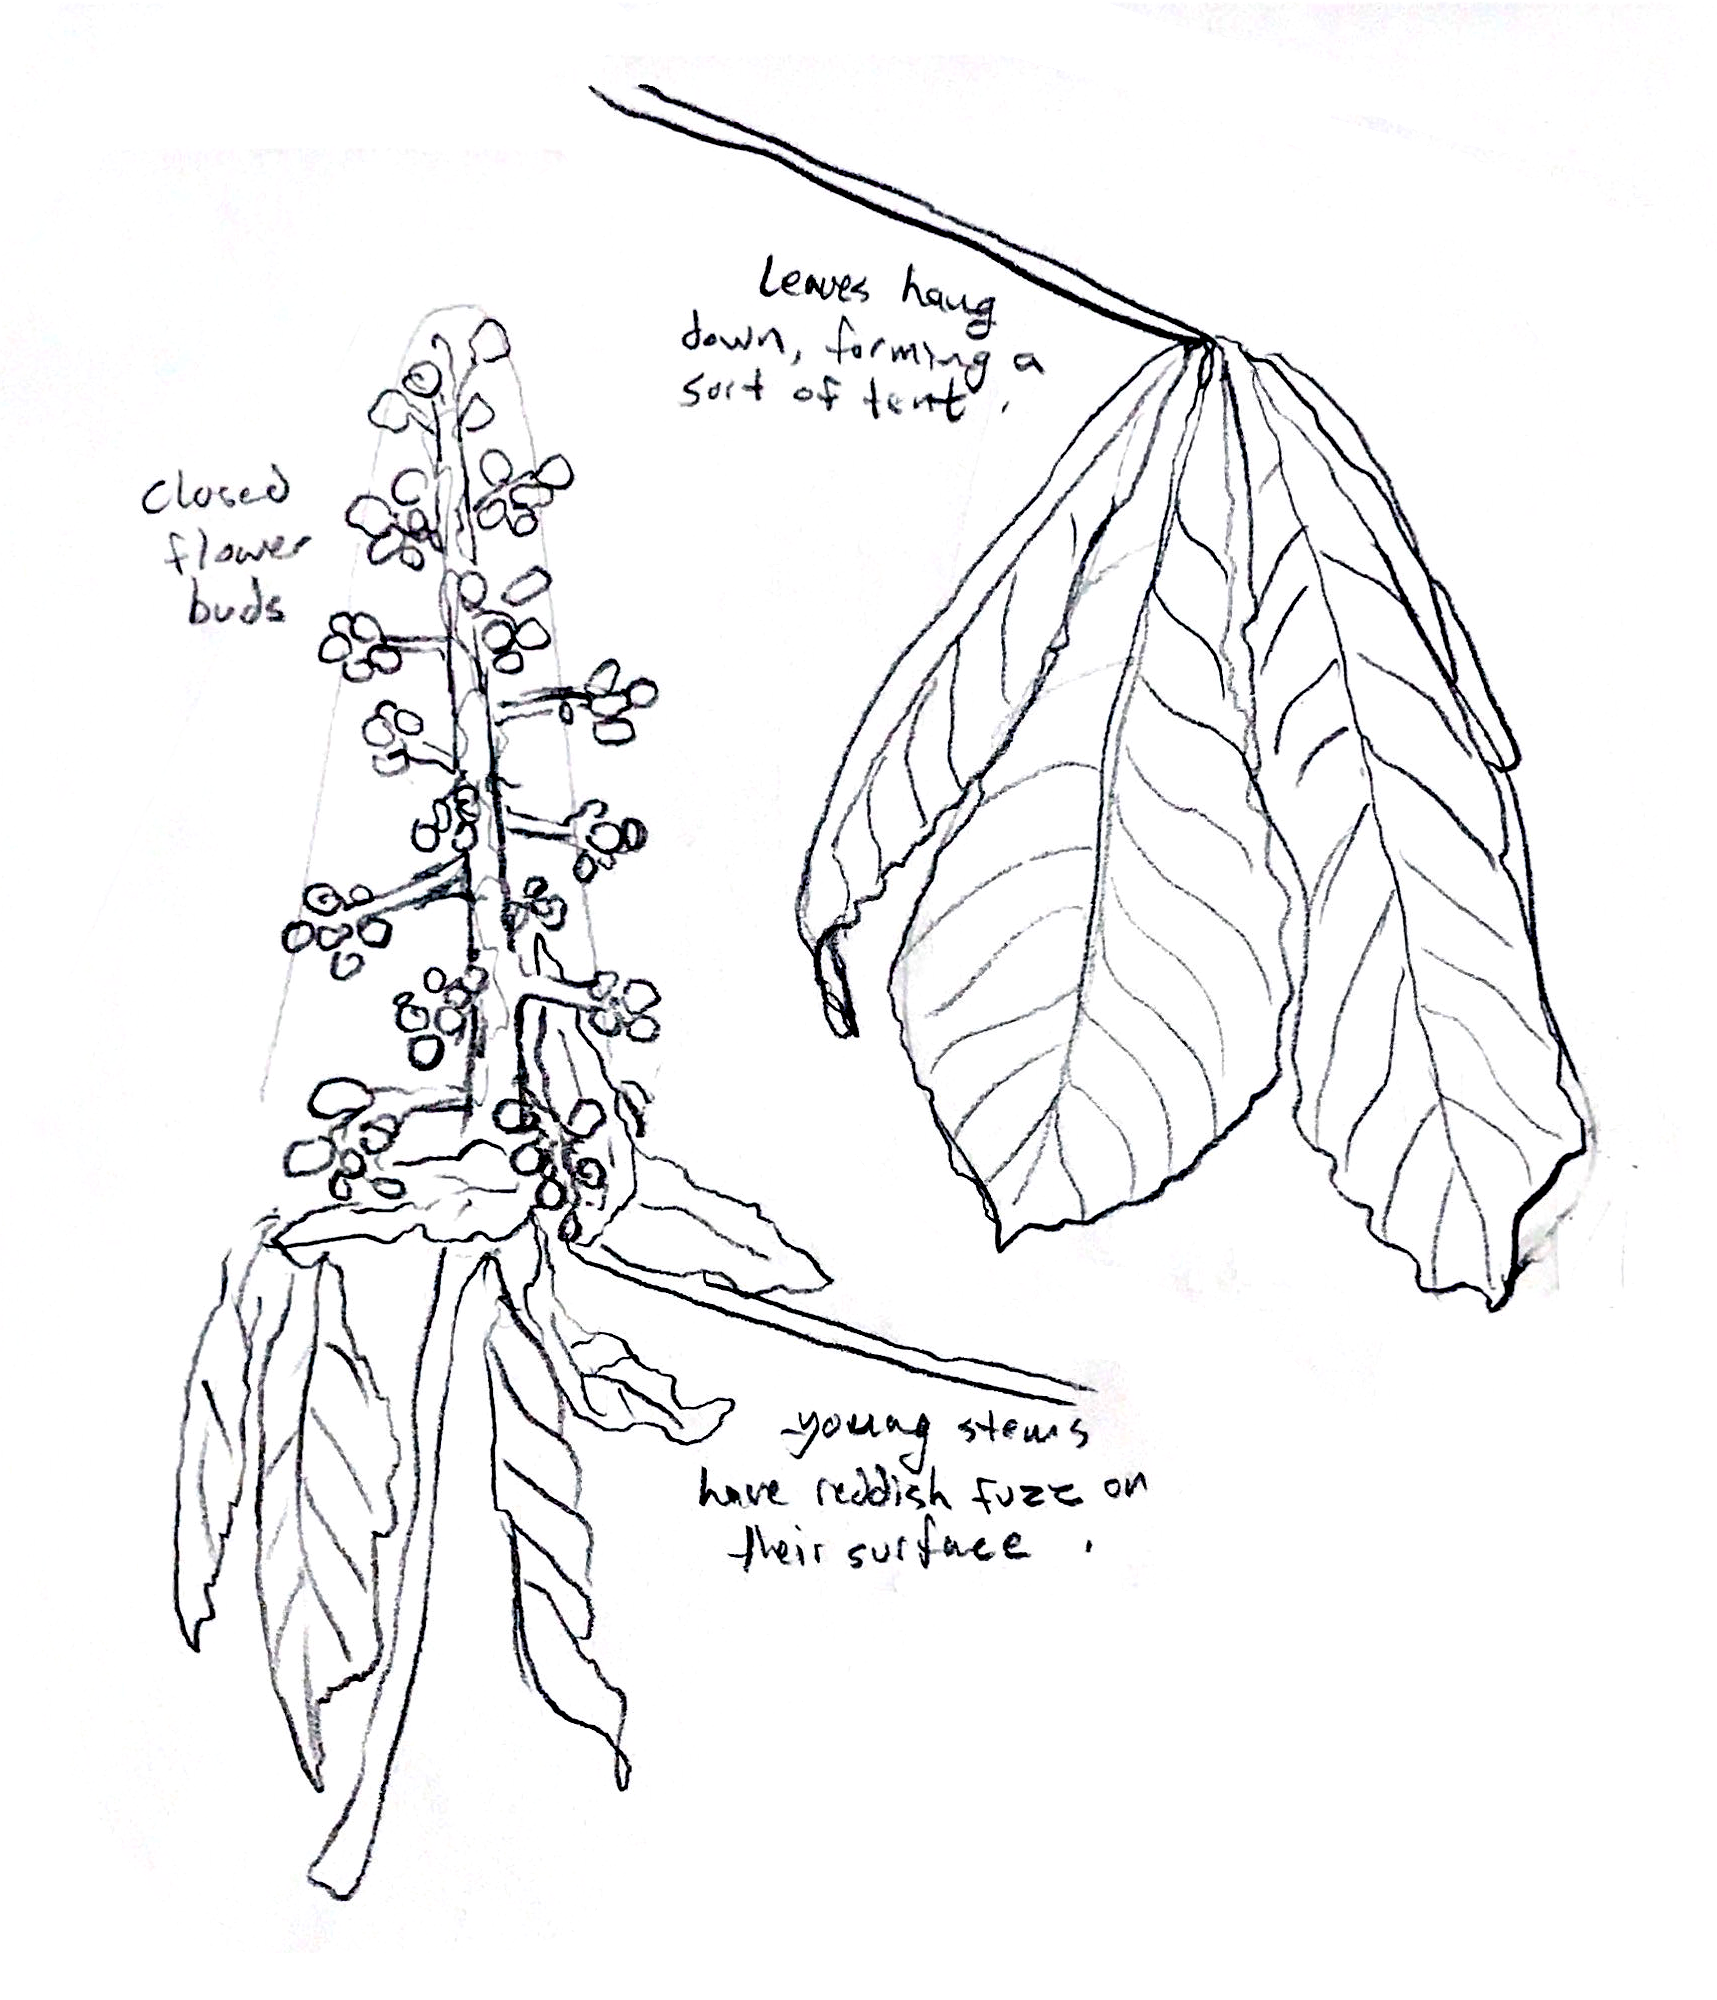 Leaves hang
down, forming a
sort of tent.
closed
flower
buds
young stems
have reddish fuzz on
their surface.